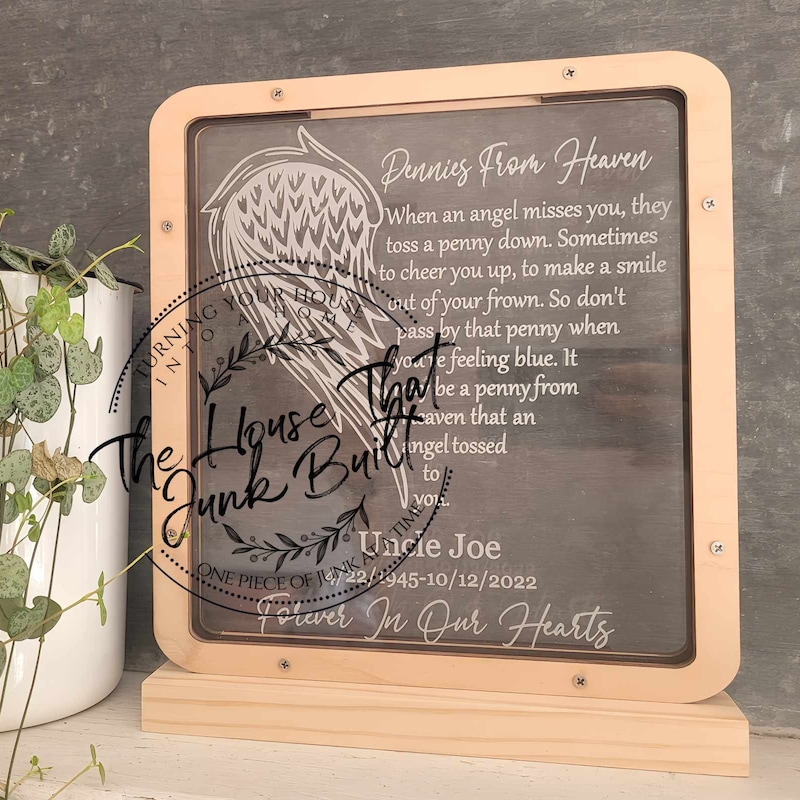 Pennies From Heaven
When an angel misses you, they
toss a penny down. Sometimes
to cheer you up, to make a smile
out of your frown. So don't
pass by that penny when
you're feeling blue. It
be a penny from
heaven that an
angel tossed
to
you.
Uncle Joe
/22/1945-10/12/2022
Forever In Our Hearts
TURNING YOUR HOUSE
INTO A HOME
The House That
Junk Built
ONE PIECE OF JUNK AT A TIME